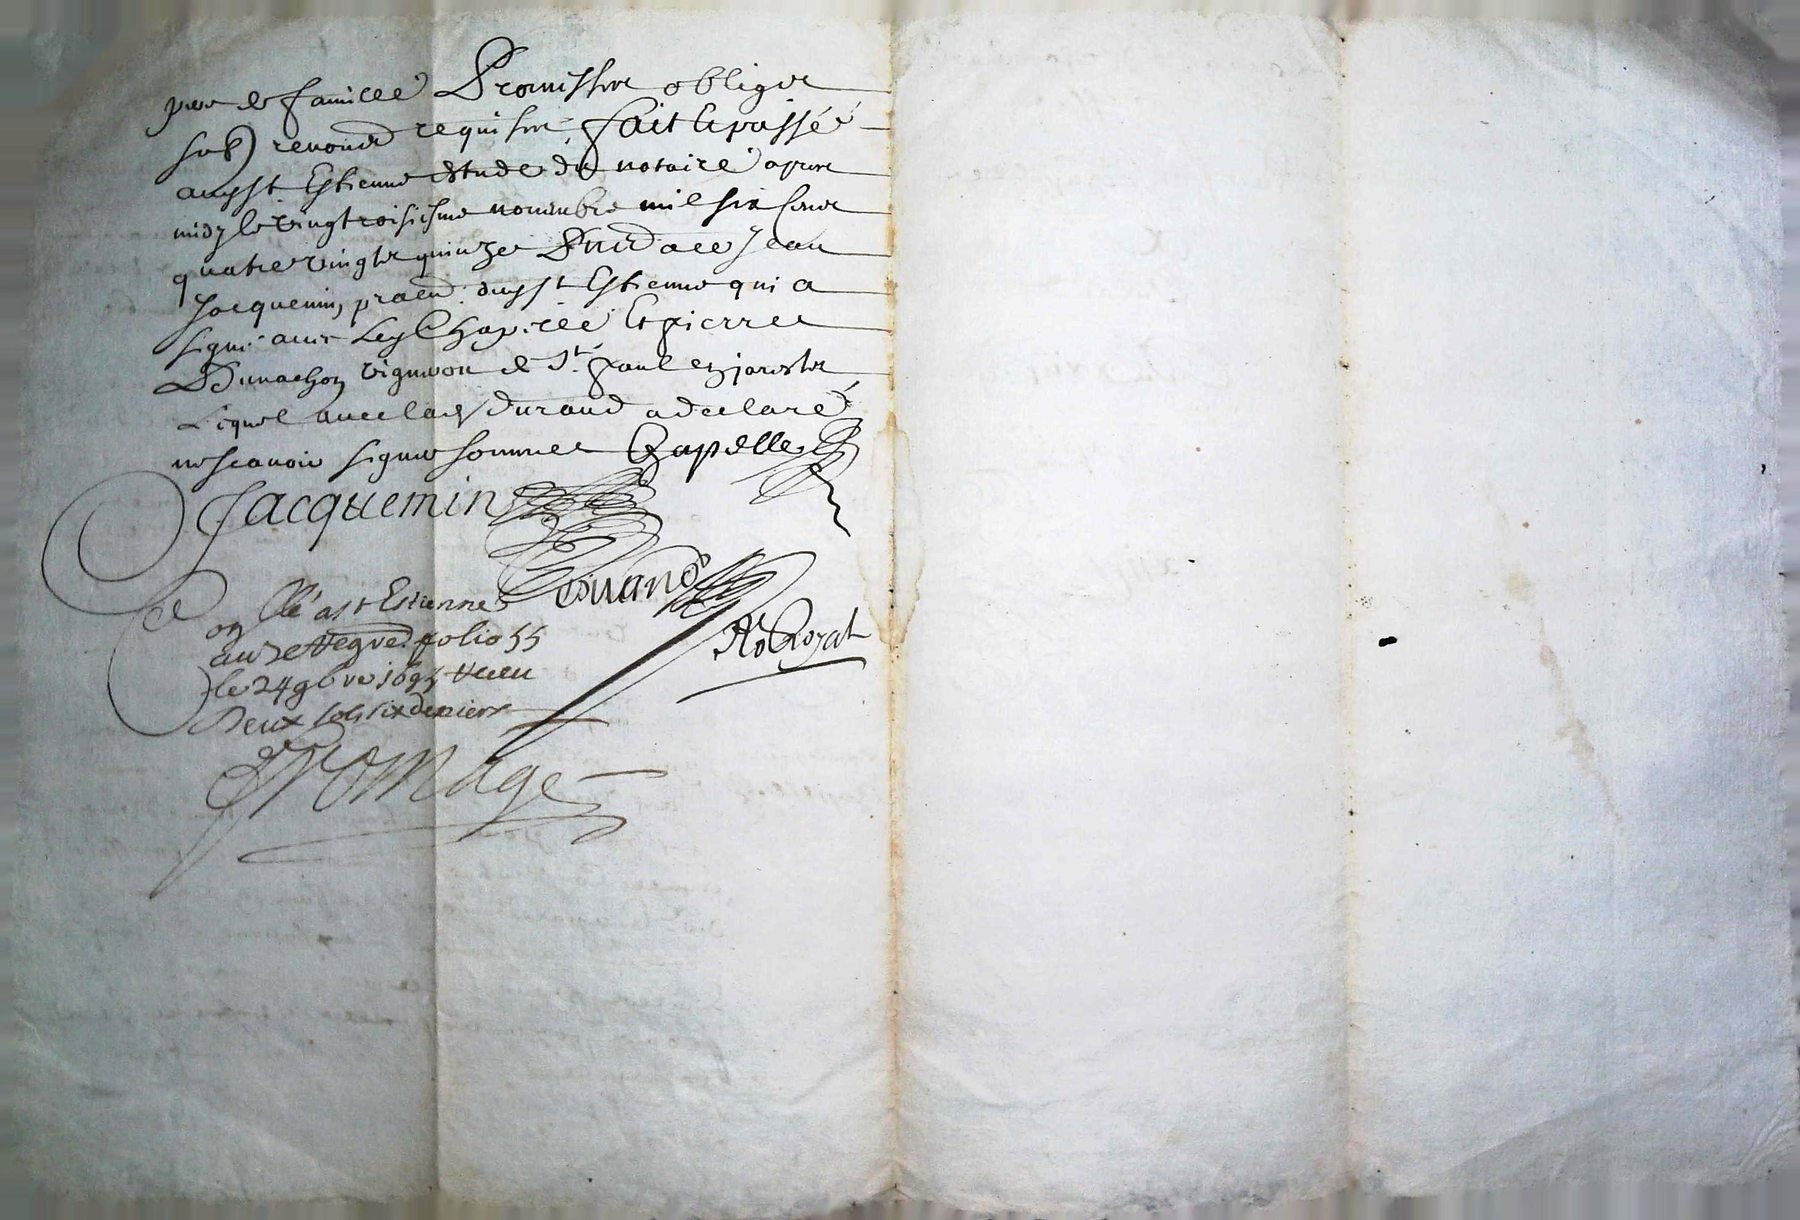 pere de famille Promissions obligãons
sub) renonc) requises, fait et passé
audt st Estienne estude du notaire apres
midy le vingtroisiesme novembre mil six cens
quatre vingtz quinze Pnts a ce Jean
Jacquemin, pratn) dudt st Estienne qui a
signé avec led Chapelle Et pierre
Dumachon vigneron de St. paul en jarestz
Lequel avec lad durand a declaré
ne scavoir signer sommes Chapelle
Jacquemin
Rozat
on llé a st Estienne
au 2e Regre. folio 55
le 24 9bre 1695 Receu
Deux sols six deniers
fromage